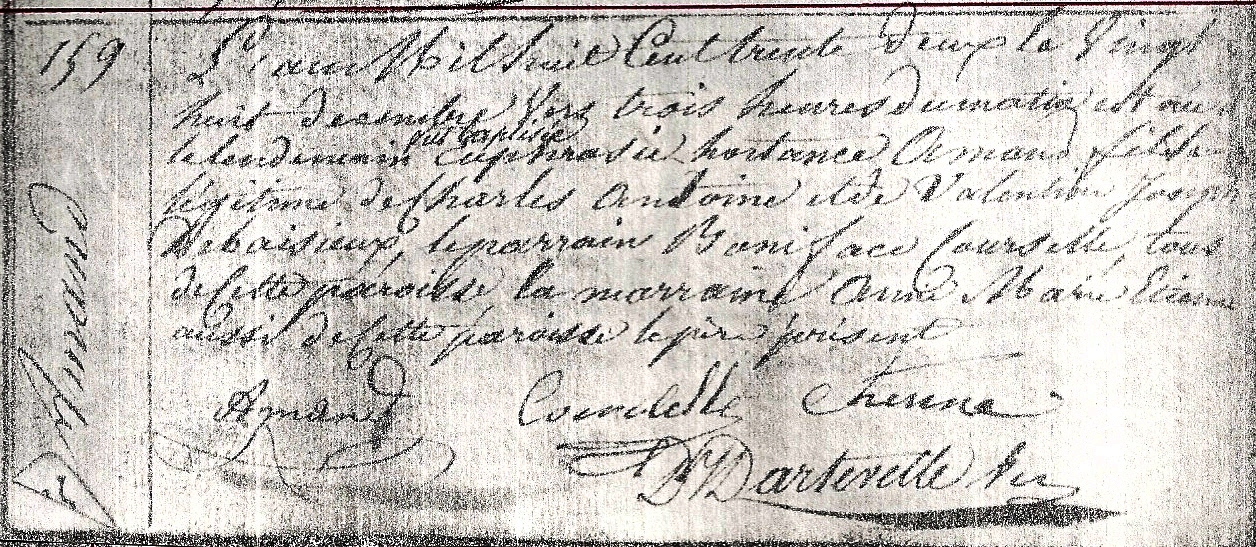 159
L'an Mil huit Cent trente deux le Vingt
huit decembre Vers trois heures du matin est née
fut baptisée
le lendemain Euphrasie hortance Amand fille
légitime de Charles Antoine et de Valentine Joseph
Debaisieux, le parrain Boniface Courselle, tous
de Cette paroisse la marraine Anne Marie Etienne
aussi de Cette paroisse le père présent
Amand
Amand Courselle
D Dartevelle